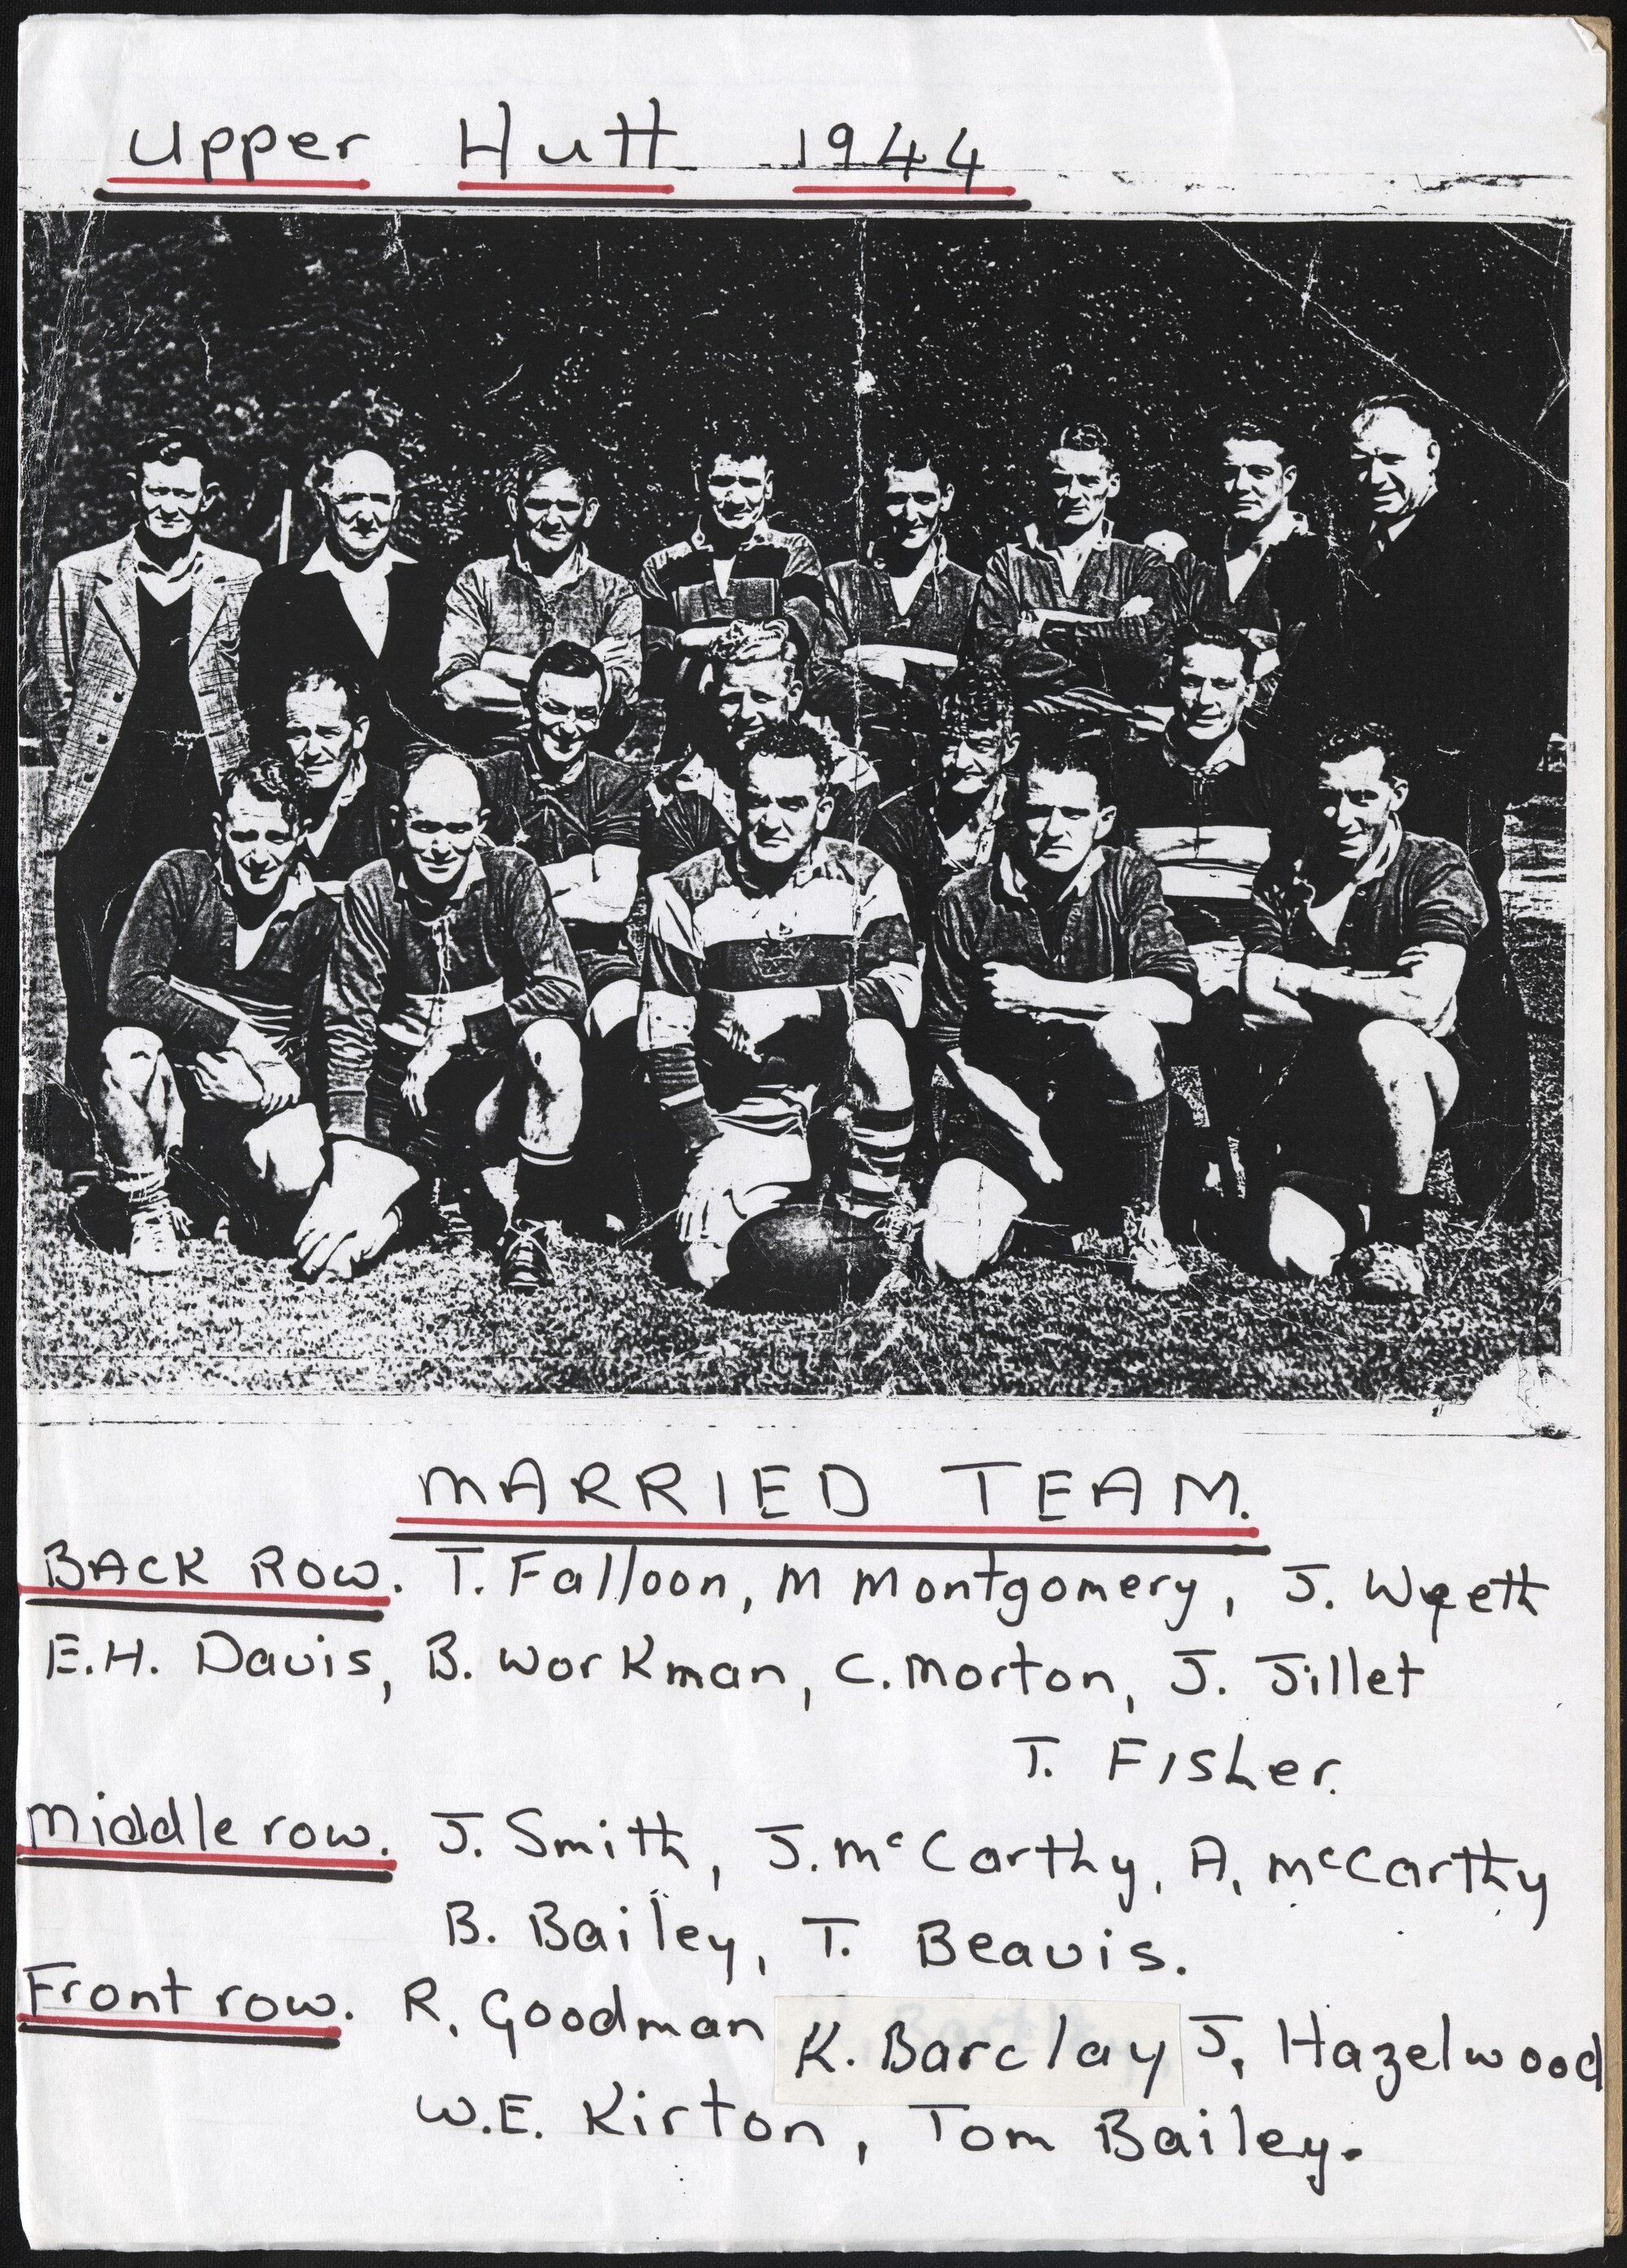 Upper Hutt 1944
MARRIED TEAM.
BACK ROW. T. Falloon, M Montgomery, J. Wyeth
E.H. Davis, B. Workman, C. Morton, J. Jillet
T. FISHer.
Middle row. J. Smith, J. McCarthy, A. McCarthy
B. Bailey, T. Beavis.
Front row. R. Goodman K. Barclay J. Hazelwood
W.E. Kirton, Tom Bailey.